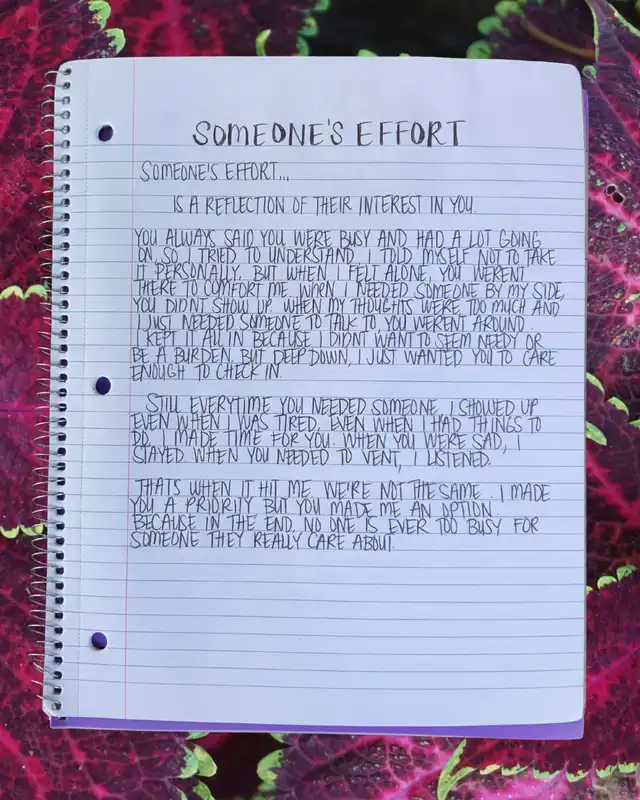 SOMEONE'S EFFORT
SOMEONE'S EFFORT...
IS A REFLECTION OF THEIR INTEREST IN YOU.
YOU ALWAYS SAID YOU WERE BUSY AND HAD A LOT GOING
ON, SO I TRIED TO UNDERSTAND. I TOLD MYSELF NOT TO TAKE
IT PERSONALLY. BUT WHEN I FELT ALONE, YOU WERENT
THERE TO COMFORT ME. WHEN I NEEDED SOMEONE BY MY SIDE,
YOU DIDNT SHOW UP. WHEN MY THOUGHTS WERE TOO MUCH AND
I JUST NEEDED SOMEONE TO TALK TO, YOU WERENT AROUND.
I KEPT IT ALL IN BECAUSE I DIDNT WANT TO SEEM NEEDY OR
BE A BURDEN. BUT DEEP DOWN, I JUST WANTED YOU TO CARE
ENOUGH TO CHECK IN.
STILL EVERYTIME YOU NEEDED SOMEONE, I SHOWED UP.
EVEN WHEN I WAS TIRED, EVEN WHEN I HAD THINGS TO
DO, I MADE TIME FOR YOU. WHEN YOU WERE SAD, I
STAYED. WHEN YOU NEEDED TO VENT, I LISTENED.
THATS WHEN IT HIT ME. WE'RE NOT THE SAME. I MADE
YOU A PRIORITY BUT YOU MADE ME AN OPTION.
BECAUSE IN THE END, NO ONE IS EVER TOO BUSY FOR
SOMEONE THEY REALLY CARE ABOUT.